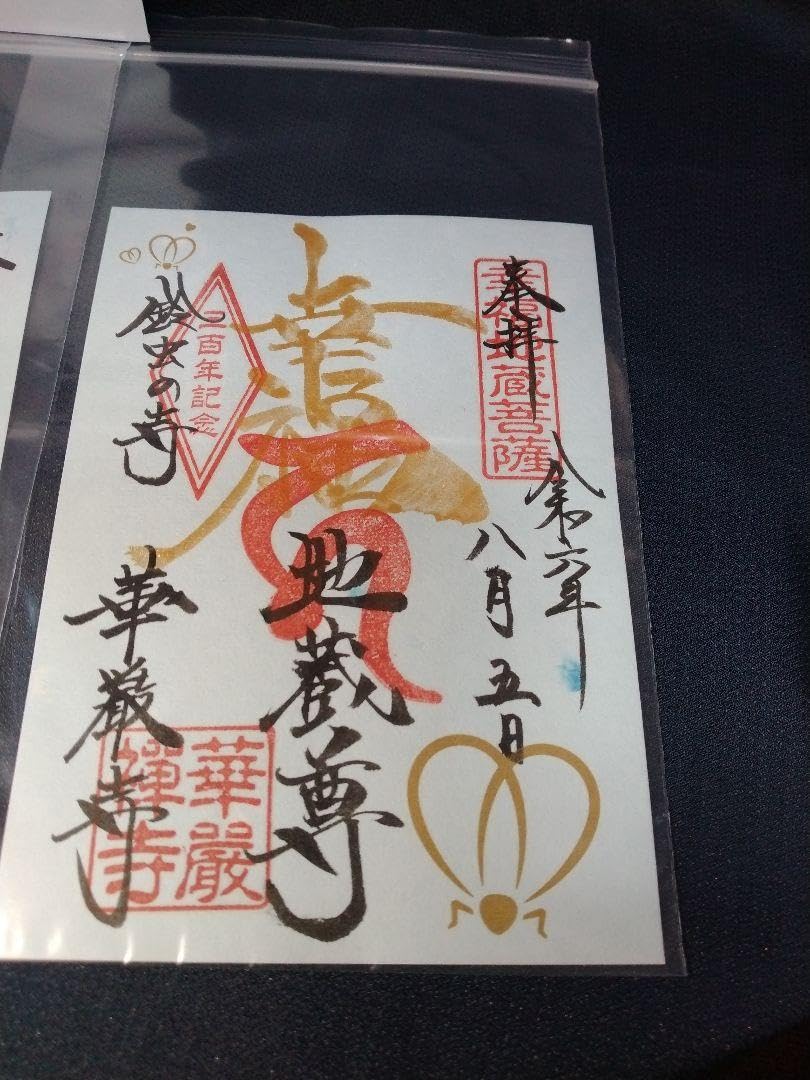 奉拝
幸福地蔵菩薩
令和六年
八月五日
地蔵尊
三百年記念
鈴虫の寺
華厳寺
華嚴
禅寺